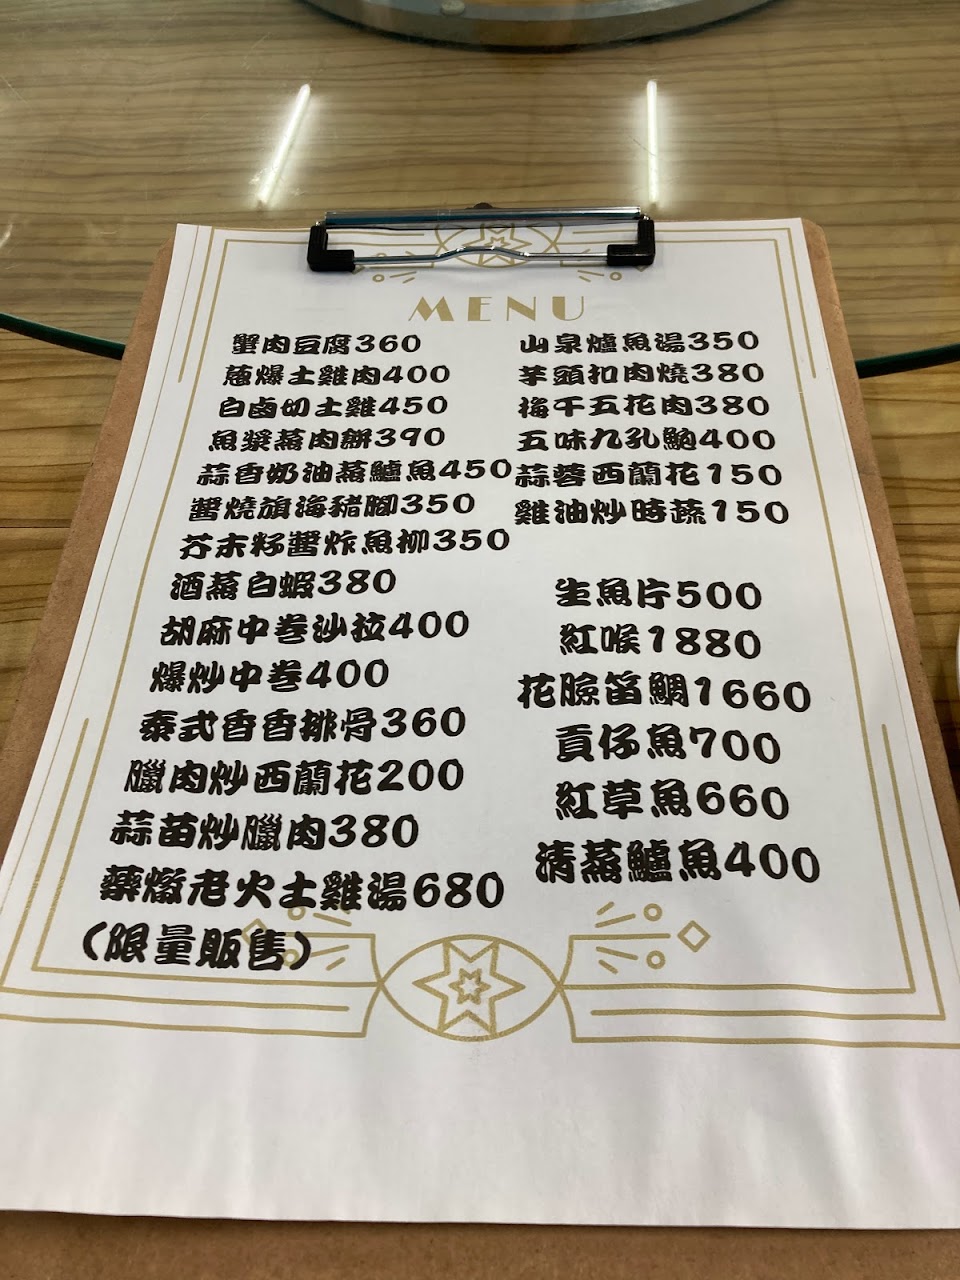 MENU
蟹肉豆腐360
蔥爆土雞肉400
白鹵切土雞450
魚漿蒸肉餅390
蒜香奶油蒸鱸魚450
醬燒旗海豬腳350
芥末籽醬炸魚柳350
酒蒸白蝦380
胡麻中卷沙拉400
爆炒中卷400
泰式香香排骨360
臘肉炒西蘭花200
蒜苗炒臘肉380
藥燉老火土雞湯680
(限量販售)
山泉爐魚湯350
芋頭扣肉燒380
梅干五花肉380
五味九孔鮑400
蒜蓉西蘭花150
雞油炒時蔬150
生魚片500
紅喉1880
花臉笛鯛1660
貢仔魚700
紅草魚660
清蒸鱸魚400